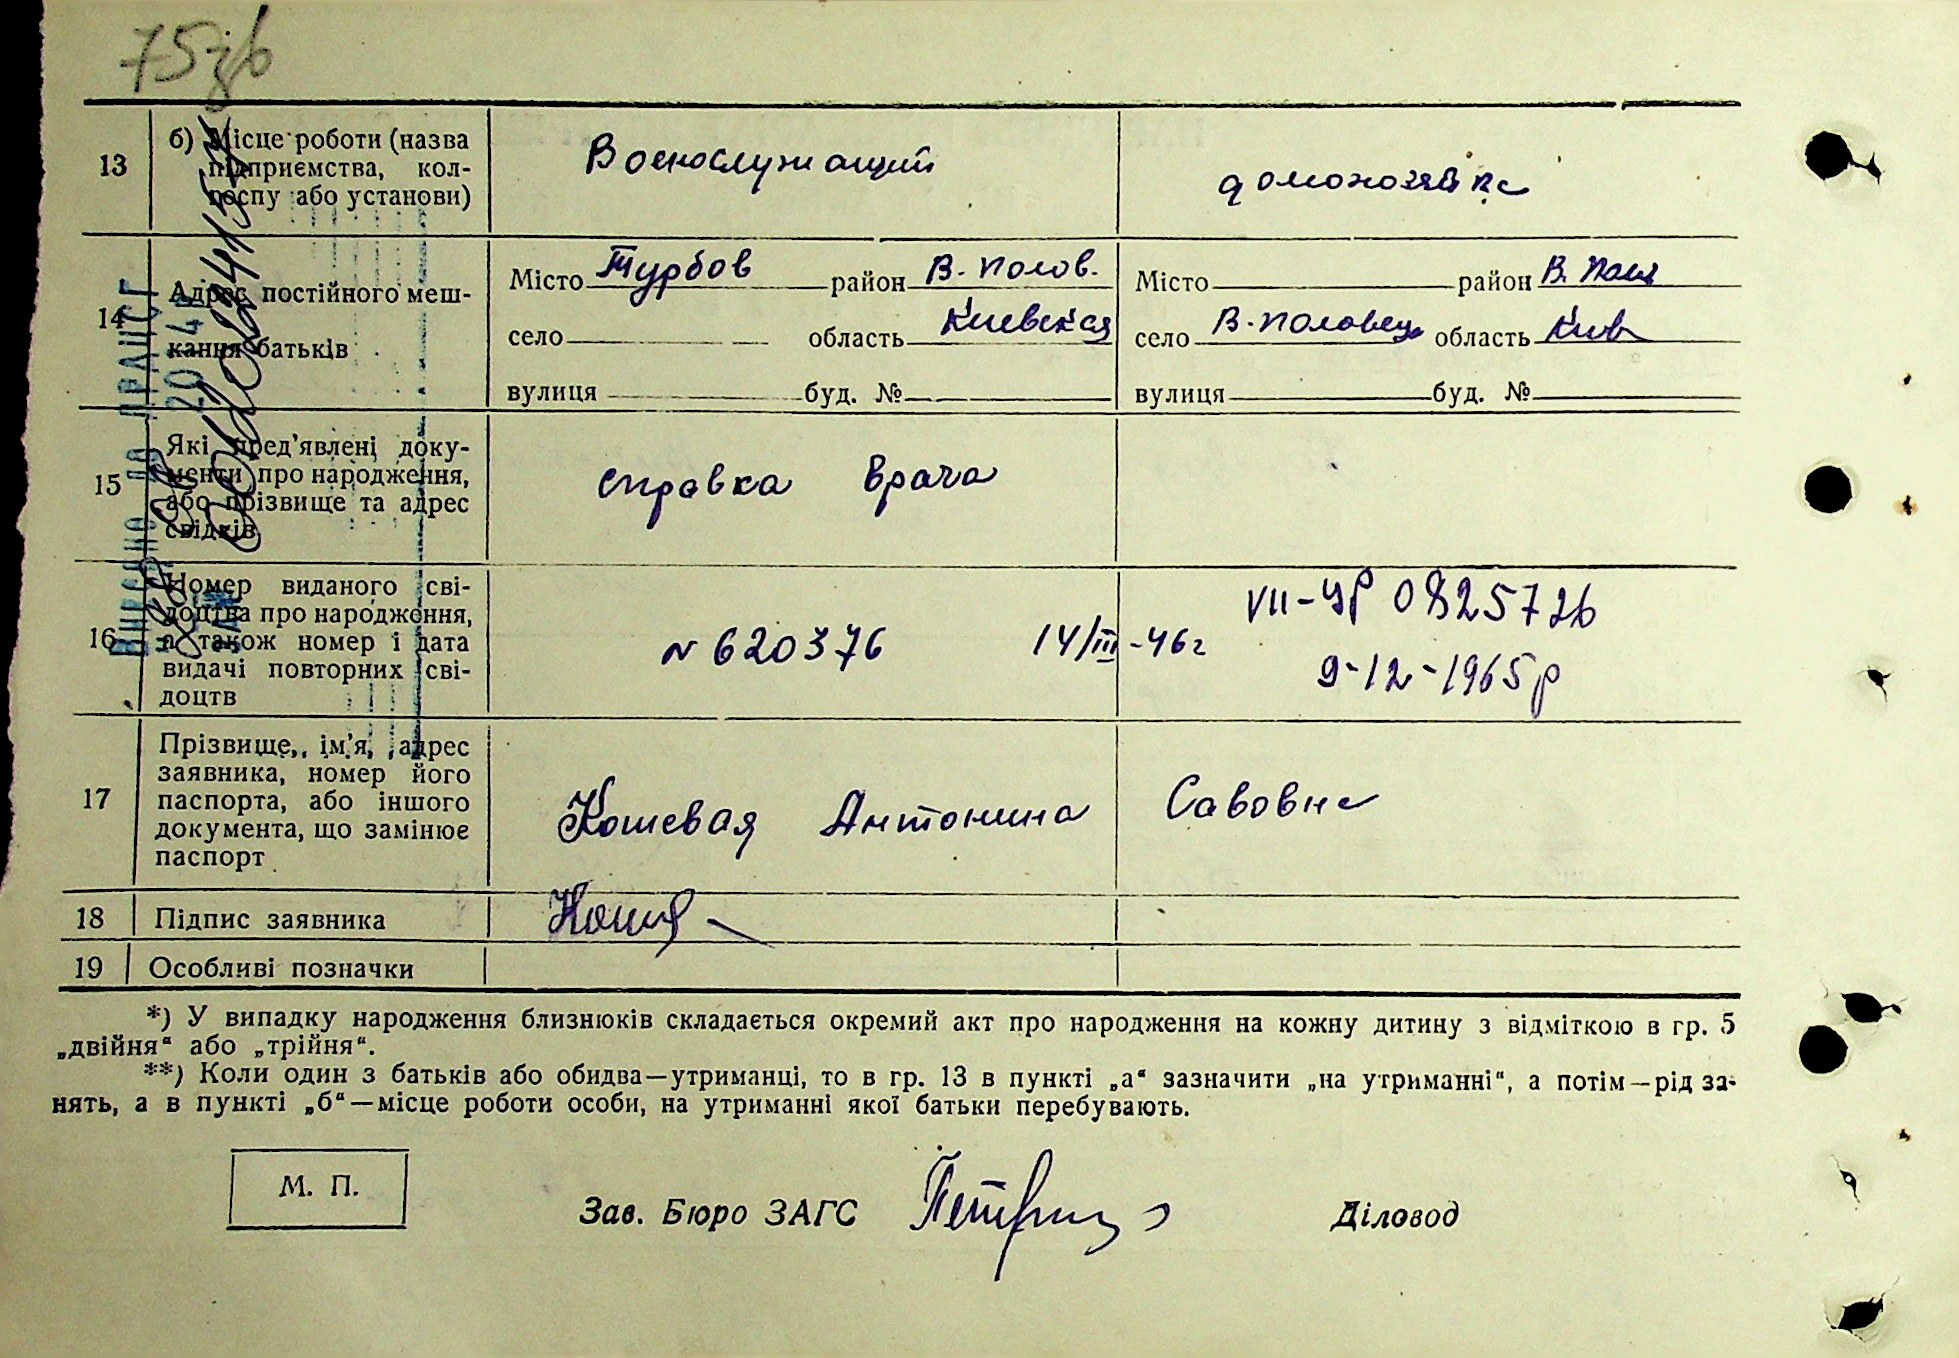 75зв
13 б) Місце роботи (назва
підприємства, кол-
госпу або установи)
Военослужащий
домохозяйка
14 Адрес постійного меш-
кання батьків
Місто Турбов район В. Полов.
село область Киевская
вулиця буд. №
Місто район В. Пол
село В. Половец область Киев
вулиця буд. №
15 Які пред'явлені доку-
менти про народження,
або прізвище та адрес
свідків
справка врача
16 Номер виданого сві-
доцтва про народження,
а також номер і дата
видачі повторних сві-
доцтв
N 620376 14/III-46г
VII-УР 0825726
9-12-1965р
17 Прізвище, ім'я, адрес
заявника, номер його
паспорта, або іншого
документа, що замінює
паспорт
Кошевая Антонина Савовна
18 Підпис заявника
19 Особливі позначки
*) У випадку народження близнюків складається окремий акт про народження на кожну дитину з відміткою в гр. 5
„двійня“ або „трійня“.
**) Коли один з батьків або обидва—утриманці, то в гр. 13 в пункті „а“ зазначити „на утриманні“, а потім—рід за-
нять, а в пункті „б“—місце роботи особи, на утриманні якої батьки перебувають.
М. П.
Зав. Бюро ЗАГС
Діловод